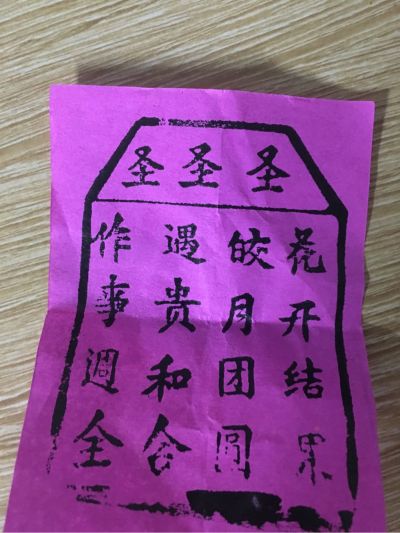 圣圣圣
花开结果
皎月团圆
遇贵和合
作事週全